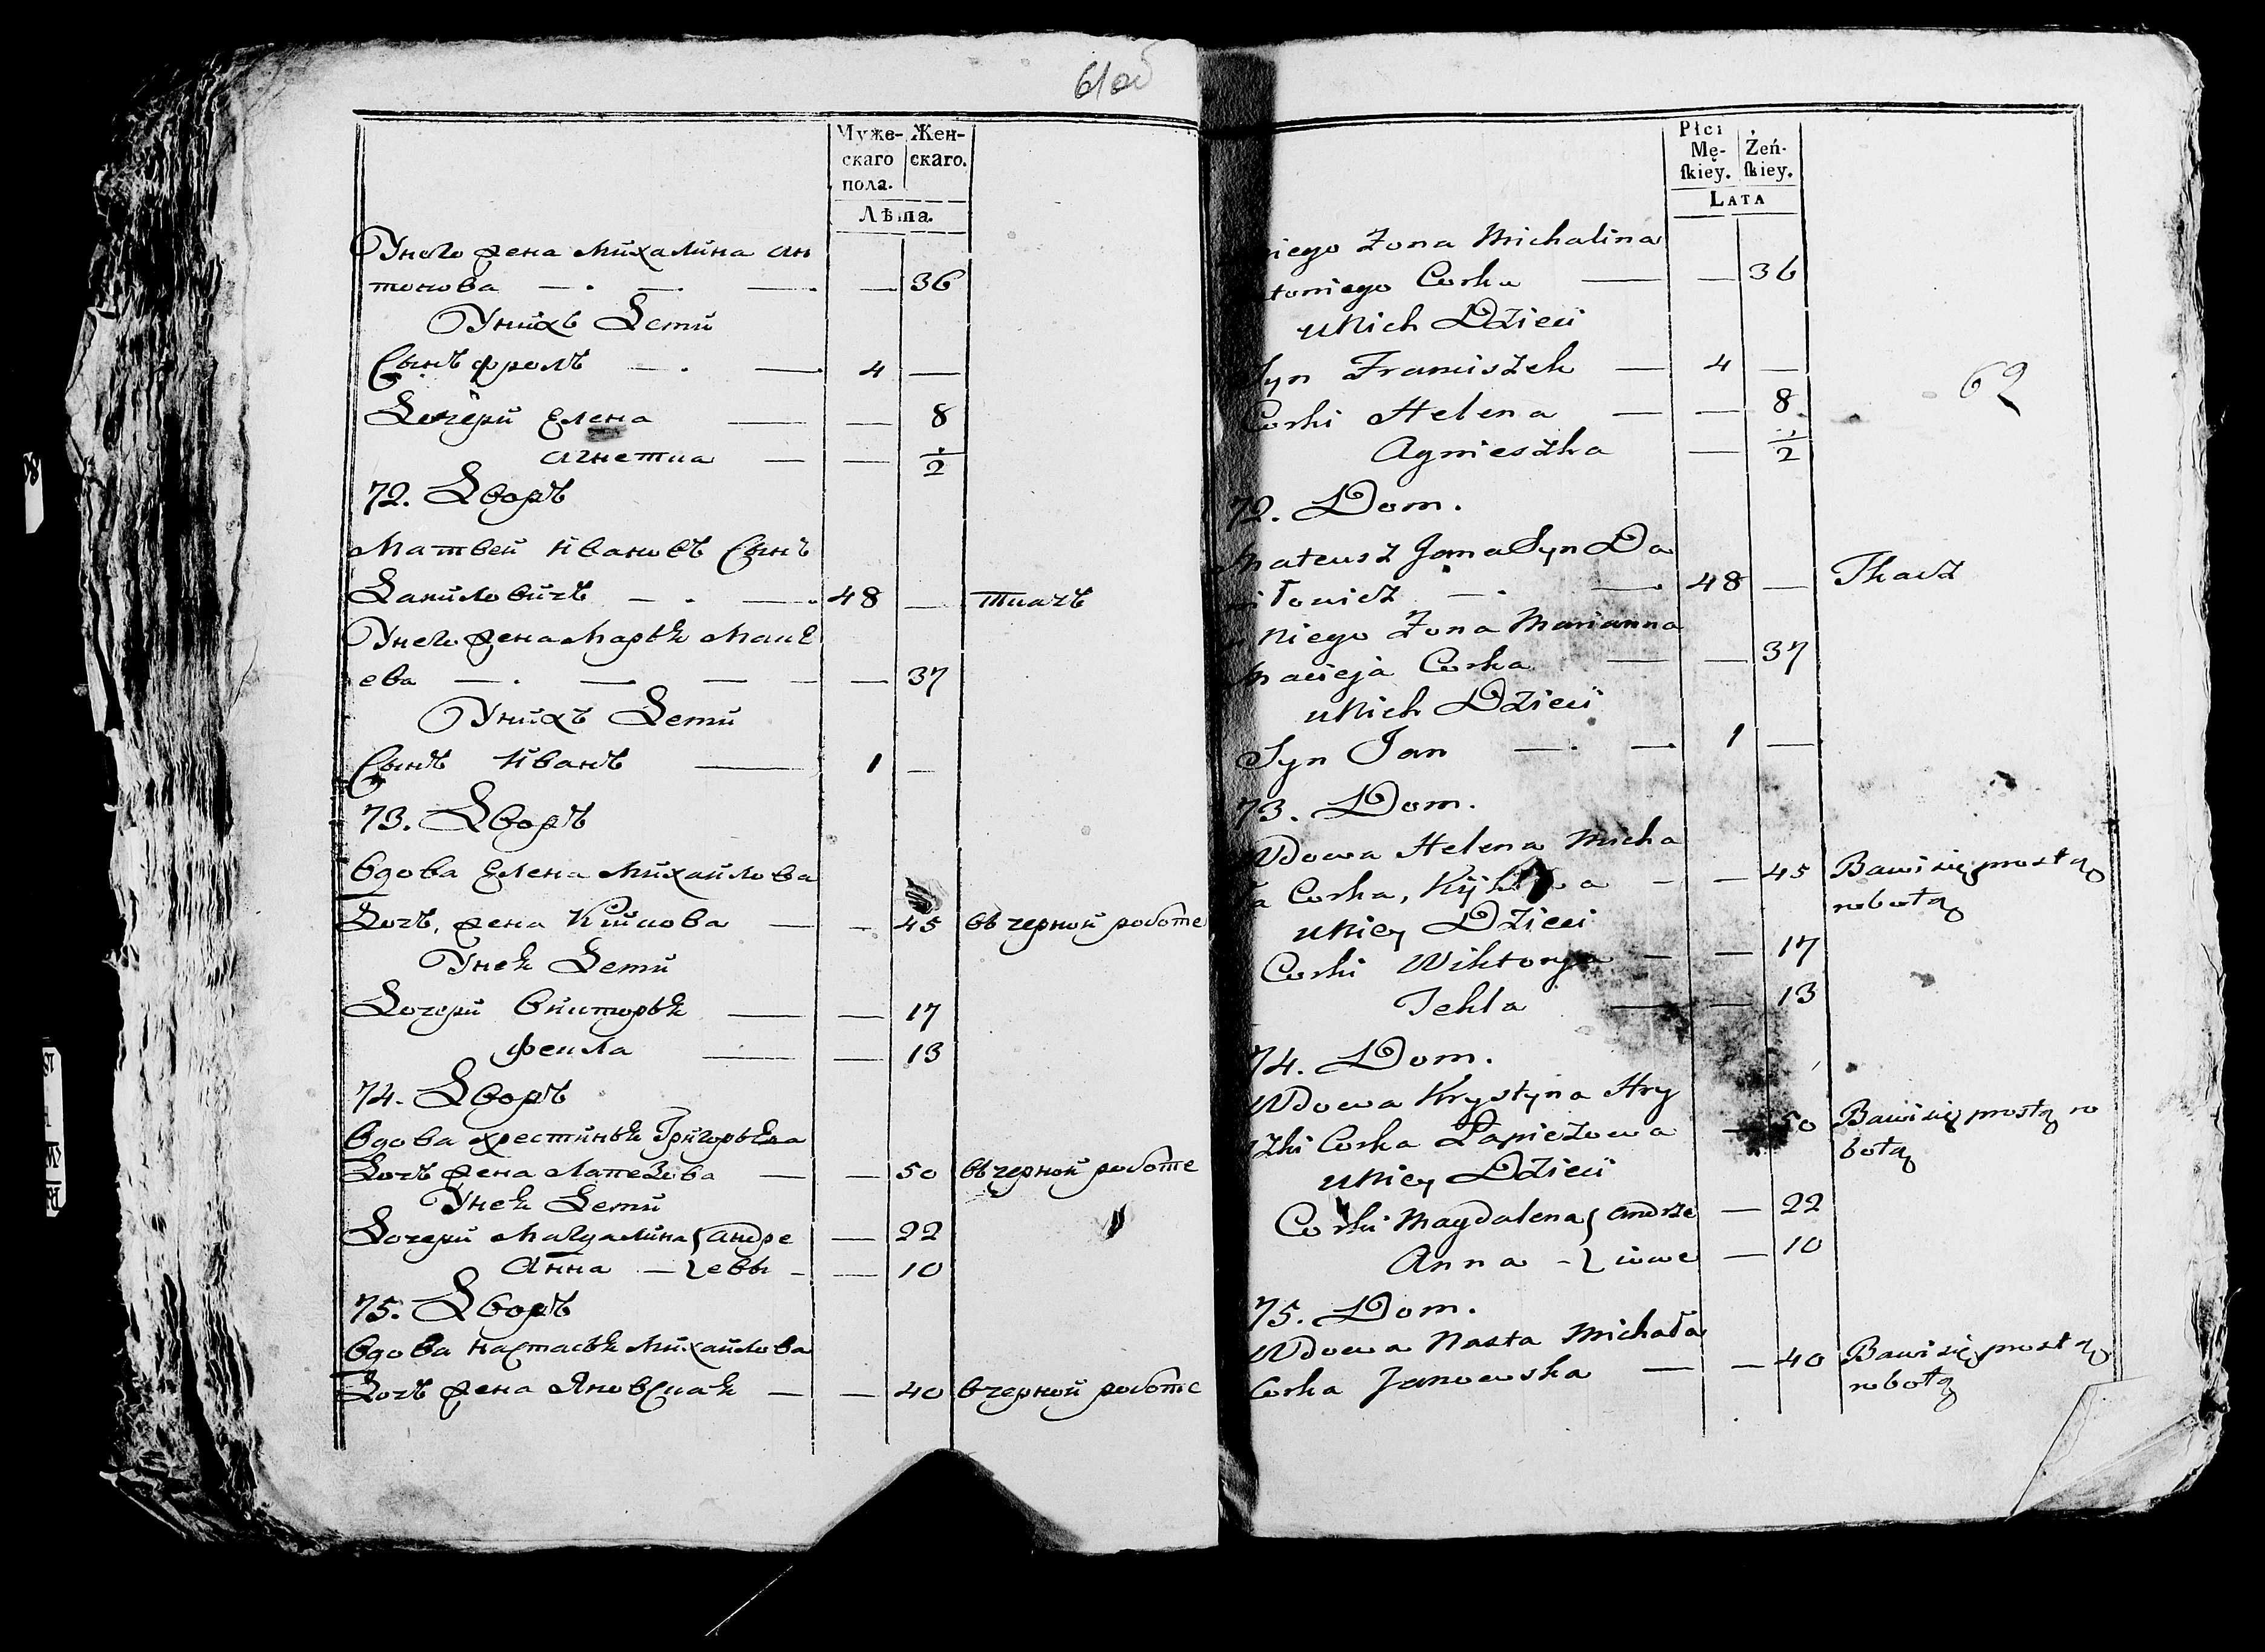 61об
Муже- Жен-
скаго скаго.
пола.
Лѣта.
Унего жена Михалина Ан
тонова — . — . — . — 36
Унихъ Дети
Сынъ Фролъ — . — . 4 —
Дочери Елена — — 8
Агнетка — — 1/2
72. Дворъ
Матвей Ивановъ Сынъ
Даниловичъ — . — . 48 — ткачъ
Унего жена Марья Мацѣ
ева — . — — — — 37
Унихъ Дети
Сынъ Иванъ — 1 —
73. Дворъ
Вдова Елена Михайлова
Дочь, жена Кикова — — 45 въ черной работе
Унеѣ Дети
Дочери Викторья — — 17
Фекла — — 13
74. Дворъ
Вдова Хрестинья Григорьева
Дочь жена Лапезова — — 50 въ черной работе
Унеѣ Дети
Дочери Магдалина { Андре — 22
Анна — } евы - — 10
75. Дворъ
Вдова Настасья Михайлова
Дочь жена Яновская — — 40 в черной работе
Płci
Mę- Żeń-
ſkiey. ſkiey.
LATA
niego Żona Michalina
toniego Corka — — 36
uNich Dzieci
Syn Franciszek — 4 —
62
Corki Helena — — 8
Agnieszka — 1/2
72. Dom.
Mateusz Jana Syn Da
niłowicz — . — . 48 — Tkacz
Niego Żona Marianna
Macieja Corka — — 37
uNich Dzieci
Syn Jan — . — . 1 —
73. Dom.
Wdowa Helena Micha
ła Corka, - — 45 Bawi się prostą
robotą
uNiey Dzieci
Corki Wiktorya — — 17
Tekla — — 13
74. Dom.
Wdowa Krystyna Hry
Corka Łapieżowa — 50 Bawi się prostą ro
botą
uNiey Dzieci
Corki Magdalena { Andrze — 22
Anna - } iowe — 10
75. Dom.
Wdowa Nasta Michała
Corka Janowska — — 40 Bawi się prostą
robotą